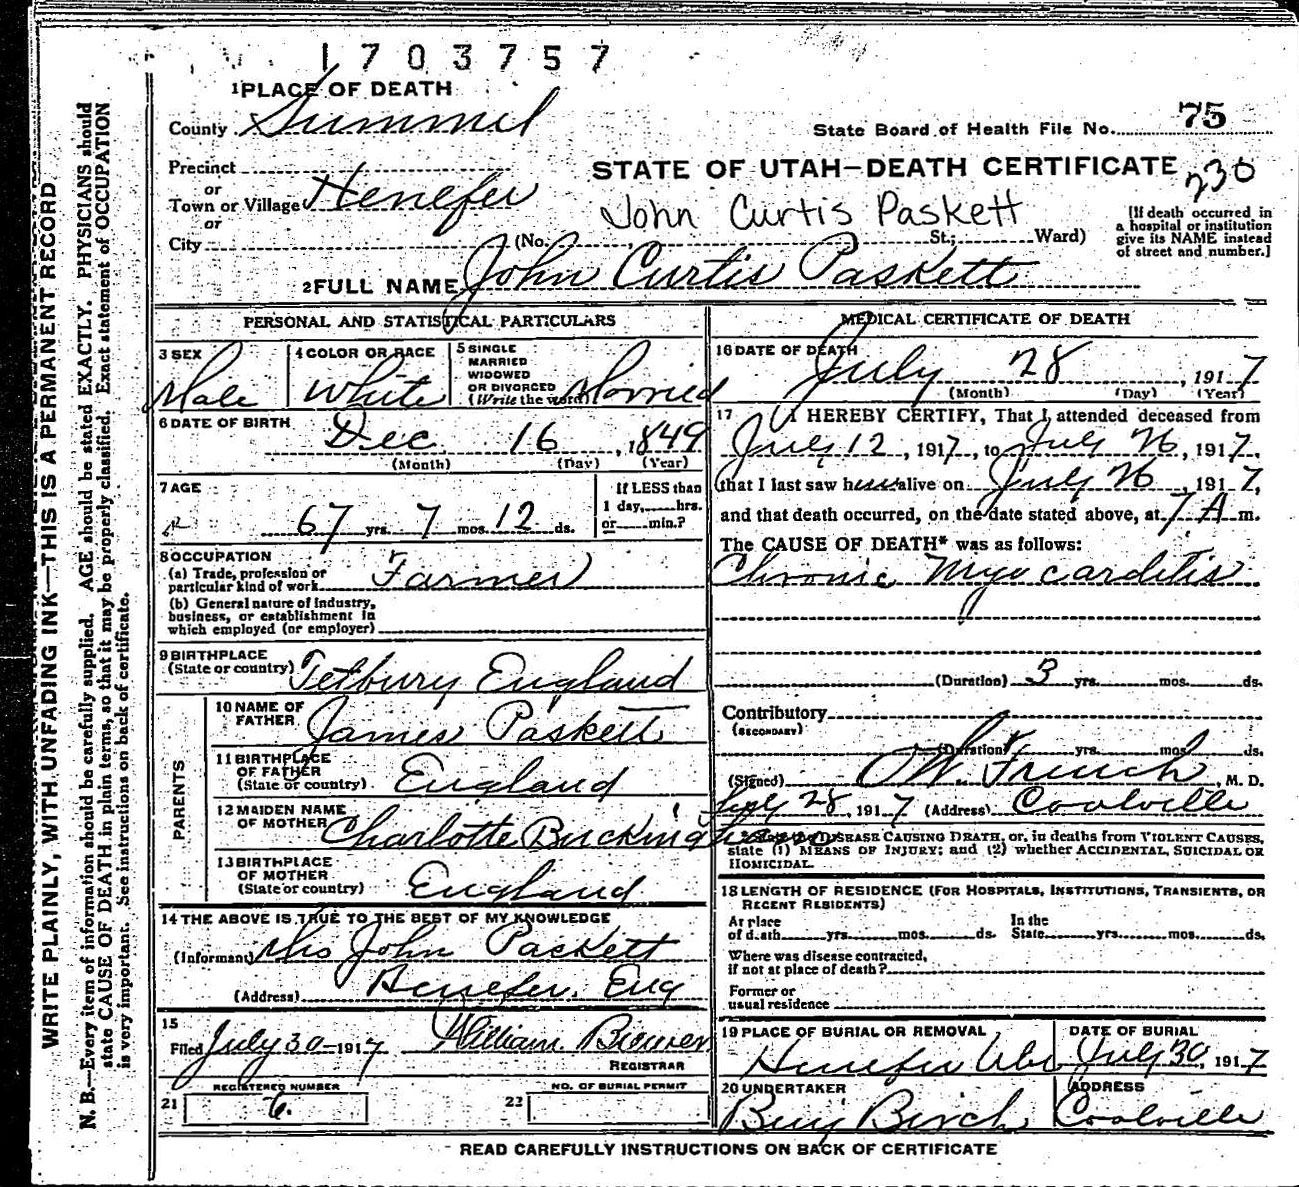 1703757
1 PLACE OF DEATH
County Summit
State Board of Health File No. 75
Precinct
or
Town or Village Henefer
or
City (No. , St.; Ward)
STATE OF UTAH—DEATH CERTIFICATE
230
John Curtis Paskett
[If death occurred in
a hospital or institution
give its NAME instead
of street and number.]
2 FULL NAME John Curtis Paskett
PERSONAL AND STATISTICAL PARTICULARS
3 SEX
Male
4 COLOR OR RACE
White
5 SINGLE
MARRIED
WIDOWED
OR DIVORCED
(Write the word) Married
6 DATE OF BIRTH
Dec 16, 1849
(Month) (Day) (Year)
7 AGE
67 yrs. 7 mos. 12 ds.
If LESS than
1 day, hrs.
or min.?
8 OCCUPATION
(a) Trade, profession or
particular kind of work Farmer
(b) General nature of industry,
business, or establishment in
which employed (or employer)
9 BIRTHPLACE
(State or country) Tetbury England
PARENTS
10 NAME OF
FATHER James Paskett
11 BIRTHPLACE
OF FATHER
(State or country) England
12 MAIDEN NAME
OF MOTHER Charlotte Buckingham
13 BIRTHPLACE
OF MOTHER
(State or country) England
14 THE ABOVE IS TRUE TO THE BEST OF MY KNOWLEDGE
(Informant) Mrs John Paskett
(Address) Henefer, Eng
15
Filed July 30 1917 William Brewer
REGISTRAR
REGISTERED NUMBER
21 6.
NO. OF BURIAL PERMIT
22
MEDICAL CERTIFICATE OF DEATH
16 DATE OF DEATH
July 28, 1917
(Month) (Day) (Year)
17 I HEREBY CERTIFY, That I attended deceased from
July 12, 1917, to July 26, 1917.
that I last saw him alive on July 26, 1917,
and that death occurred, on the date stated above, at 7 A m.
The CAUSE OF DEATH* was as follows:
Chronic Myocarditis
(Duration) 3 yrs. mos. ds.
Contributory
(SECONDARY)
(Duration) yrs. mos. ds.
(Signed) French, M. D.
July 28, 1917 (Address) Coalville
DISEASE CAUSING DEATH, or, in deaths from VIOLENT CAUSES,
state (1) MEANS OF INJURY; and (2) whether ACCIDENTAL, SUICIDAL OR
HOMICIDAL.
18 LENGTH OF RESIDENCE (FOR HOSPITALS, INSTITUTIONS, TRANSIENTS, OR
RECENT RESIDENTS)
At place
of death yrs. mos. ds.
In the
State yrs. mos. ds.
Where was disease contracted,
if not at place of death?
Former or
usual residence
19 PLACE OF BURIAL OR REMOVAL
Henefer
DATE OF BURIAL
July 30, 1917
20 UNDERTAKER
Benj Birch
ADDRESS
Coalville
READ CAREFULLY INSTRUCTIONS ON BACK OF CERTIFICATE
WRITE PLAINLY, WITH UNFADING INK—THIS IS A PERMANENT RECORD
N. B.—Every item of information should be carefully supplied. AGE should be stated EXACTLY. PHYSICIANS should
state CAUSE OF DEATH in plain terms, so that it may be properly classified. Exact statement of OCCUPATION
is very important. See instructions on back of certificate.